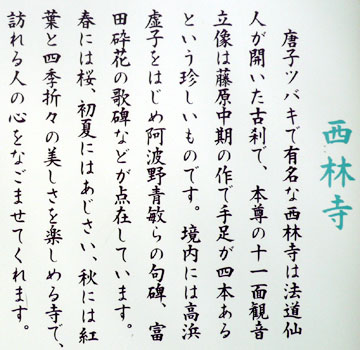 西林寺
唐子ツバキで有名な西林寺は法道仙
人が開いた古刹で、本尊の十一面観音
立像は藤原中期の作で手足が四本ある
という珍しいものです。境内には高浜
虚子をはじめ阿波野青敏らの句碑、富
田砕花の歌碑などが点在しています。
春には桜、初夏にはあじさい、秋には紅
葉と四季折々の美しさを楽しめる寺で、
訪れる人の心をなごませてくれます。